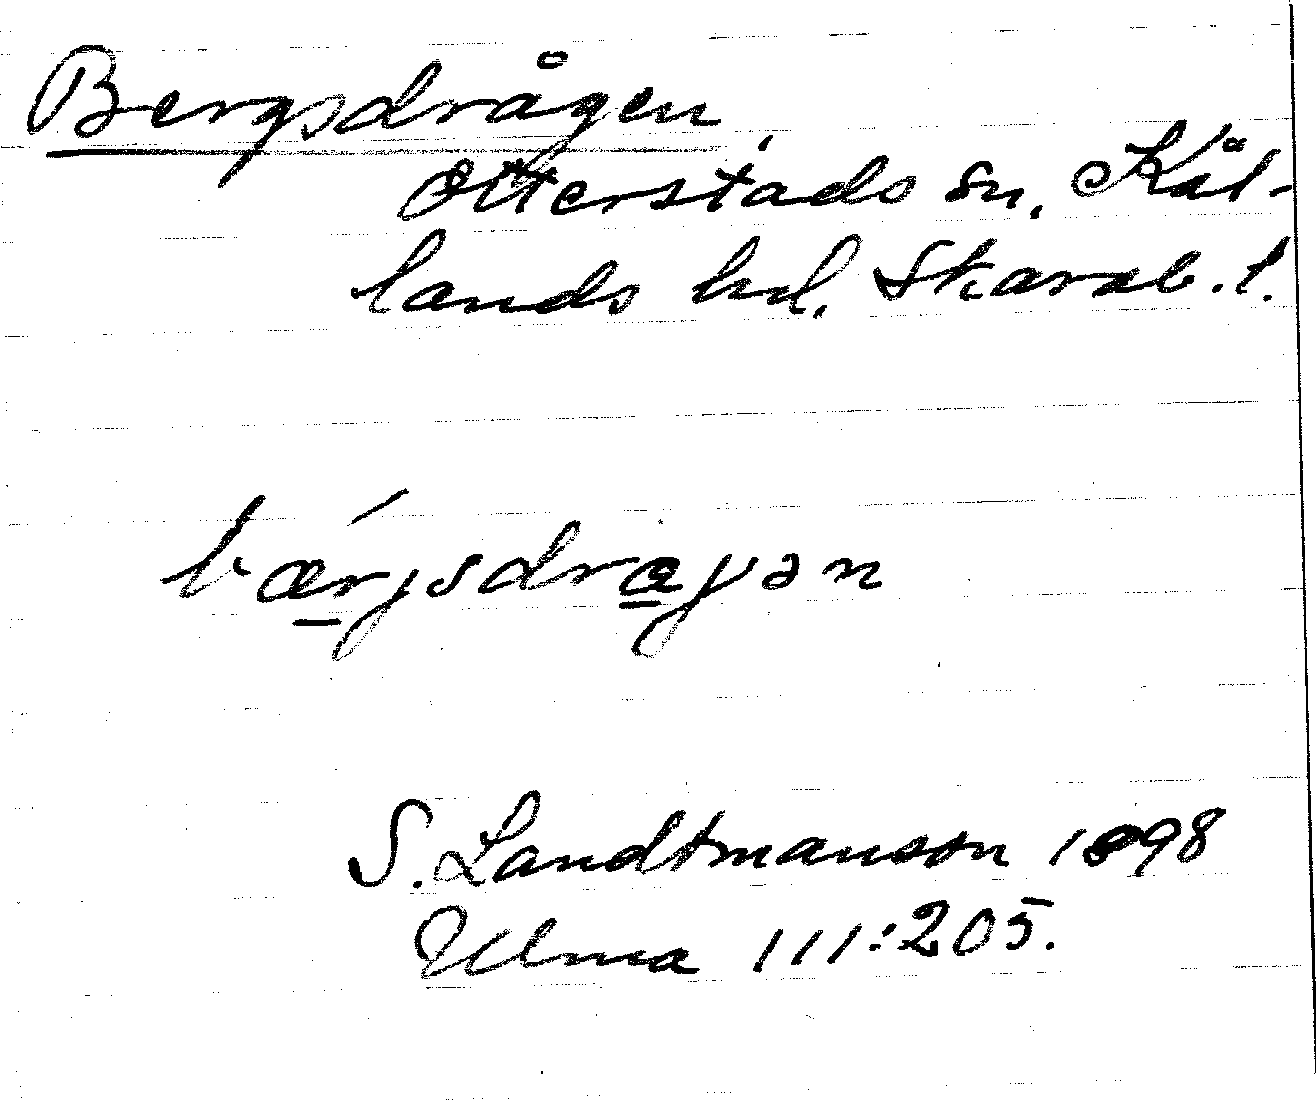 Bergsdrågen,
Otterstads sn, Kål-
lands hd. Skarab. l.
bǽrjsdragən
S. Landtmanson 1898
Ulma 111:205.